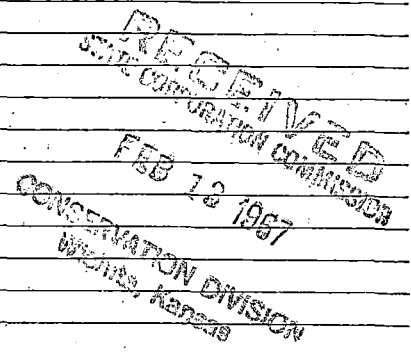 RECEIVED
STATE CORPORATION COMMISSION
FEB 1967
CONSERVATION DIVISION
Wichita, Kansas